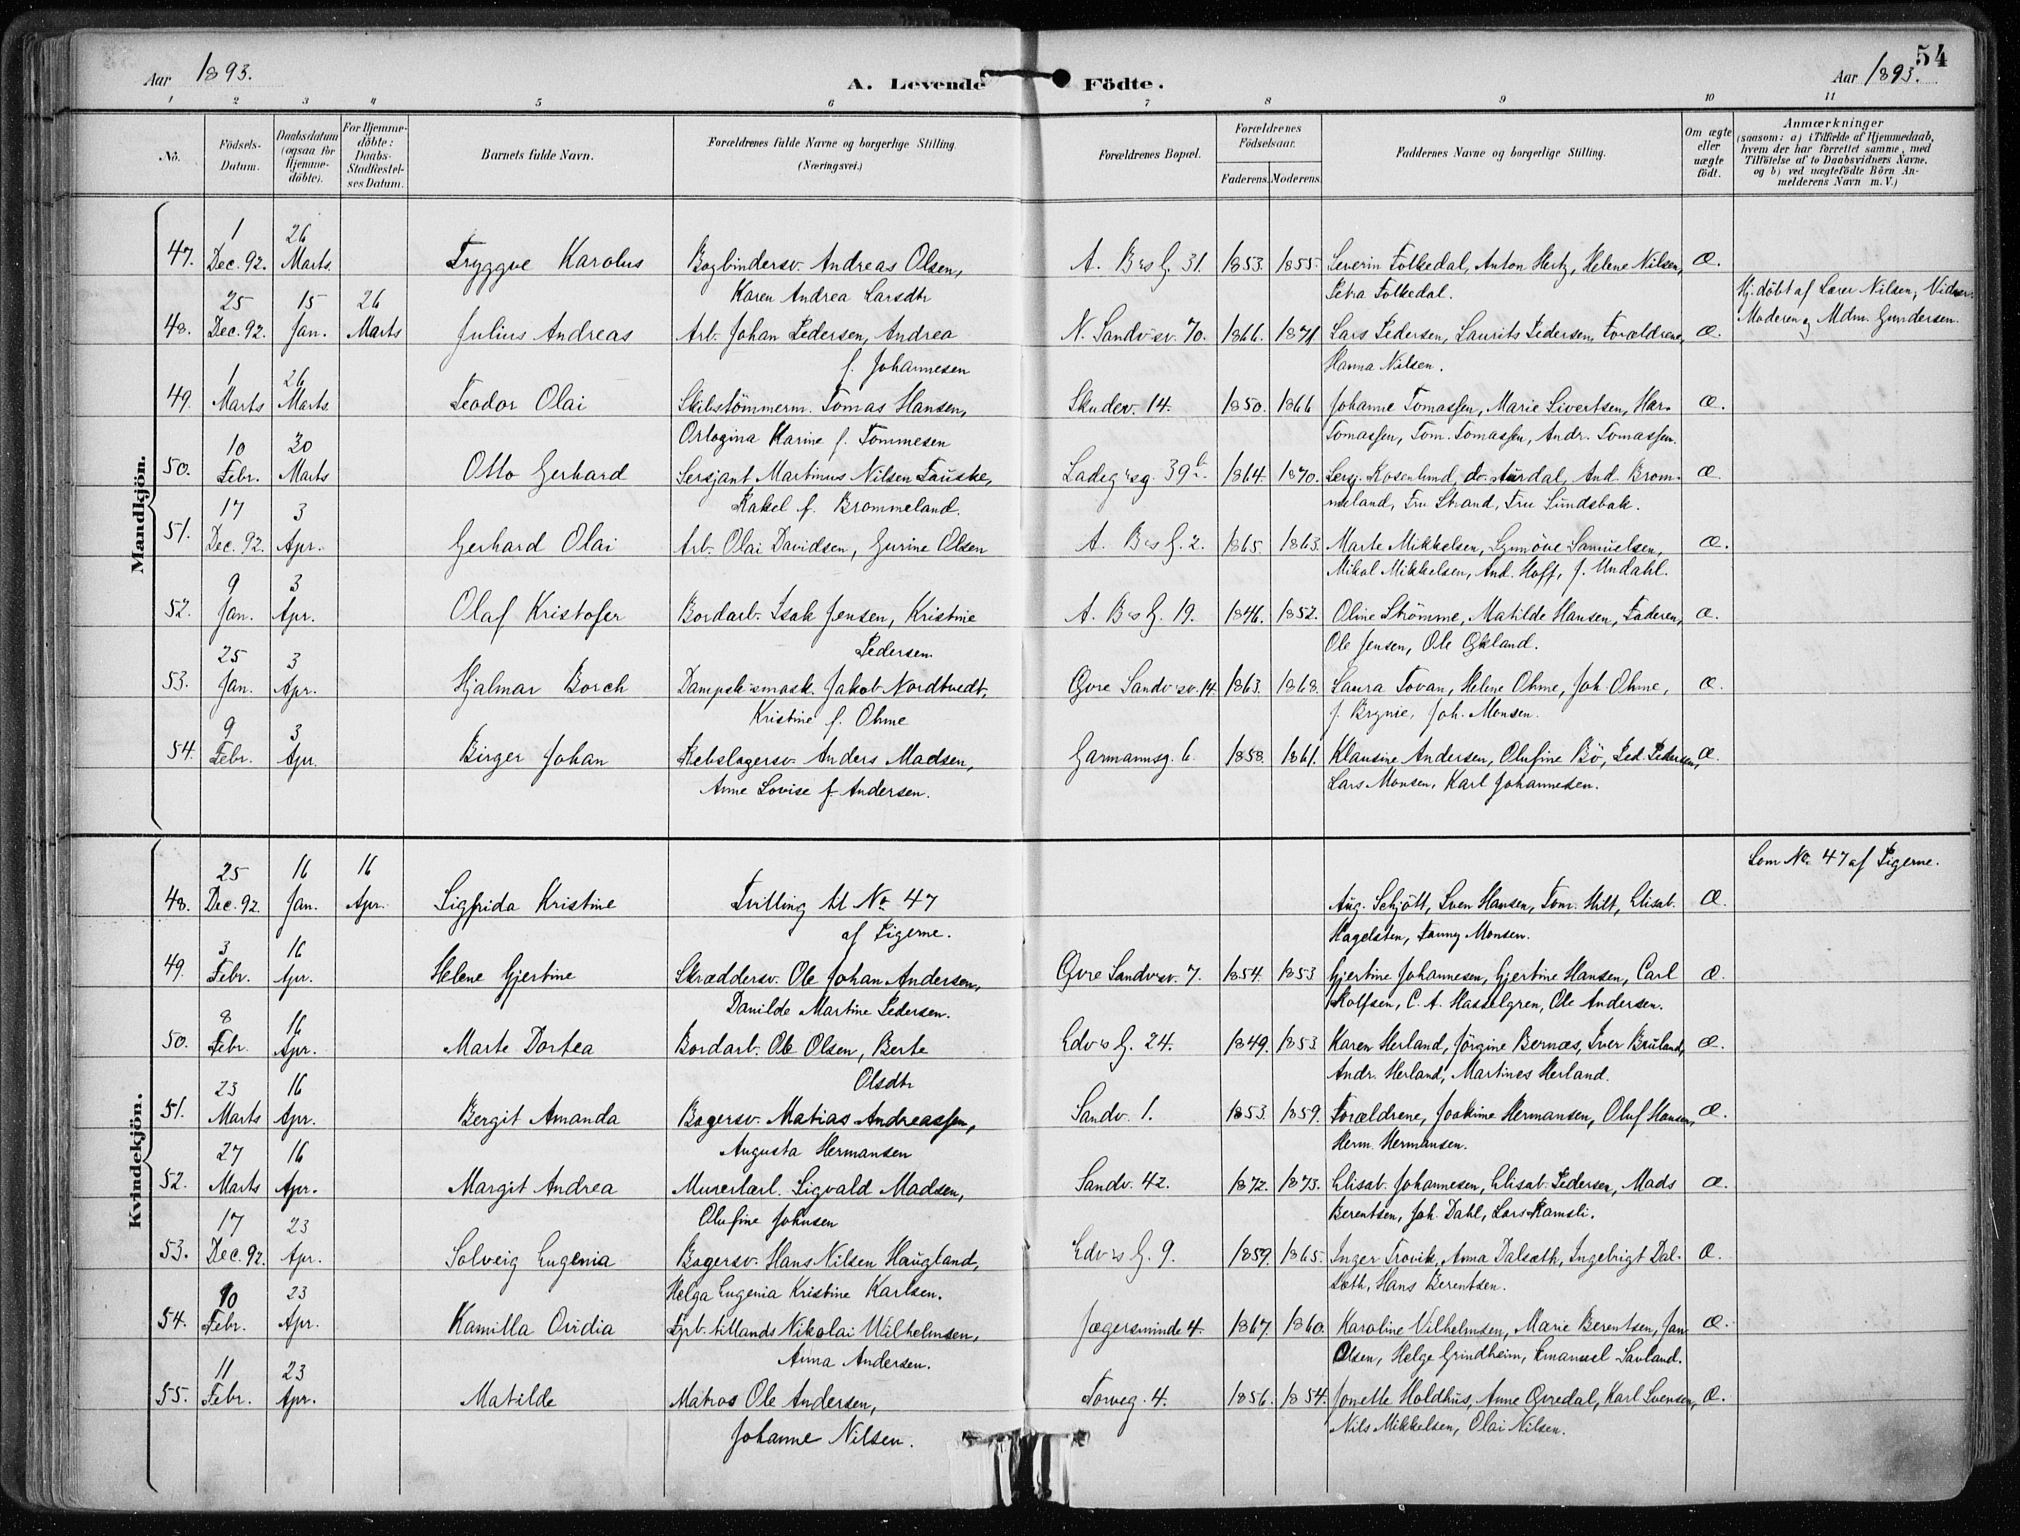 54
Aar 1893.
A. Levende Födte.
Aar 1893.
1 2 3 4 5 6 7 8 9 10 11
No.
Födsels-Datum.
Daabsdatum (ogsaa for Hjemme-döbte).
For Hjemme-döbte: Daabs-Stadfæstel-ses Datum.
Barnets fulde Navn.
Forældrenes fulde Navne og borgerlige Stilling. (Næringsvei.)
Forældrenes Bopæl.
Forældrenes Födselsaar.
Faderens. Moderens.
Faddernes Navne og borgerlige Stilling.
Om ægte eller uægte födt.
Anmærkninger (saasom: a) i Tilfælde af Hjemmedaab, hvem der har forrettet samme, med Tilföielse af to Daabsvidners Navne, og b) ved uægtefödte Börn An-melderens Navn m. V.)
Mandkjön.
47. 1 Dec. 92. 26 Marts. Tryggve Karolus Bogbindersv. Andreas Olsen, A. B's G. 31. 1853. 1855. Severin Folkedal, Anton Hertz, Helene Nilsen, Æ.
Karen Andrea Larsdtr Petra Folkedal.
48. 25 Dec. 92. 15 Jan. 26 Marts Julius Andreas Arb. Johan Pedersen, Andrea N. Sandv'sv. 70. 1866. 1871. Lars Pedersen, Laurits Pedersen, Forældrene, Æ. Hj. döbt af Lærer Nilsen, Vidner
f. Johannesen Hanna Nilsen. Moderen og Mdm. Gundersen.
49. 1 Marts 26 Marts. Teodor Olai Skibstömmerm. Tomas Hansen, Skudev. 14. 1850. 1866 Johanne Tomassen, Marie Sivertsen, Har. Æ
Ortogina Karine f. Tommesen Tomassen, Tom. Tomassen, Andr. Tomassen.
50. 10 Febr. 20 Marts Otto Gerhard Sersjant Martinus Nilsen Fauske, Ladeg'sg. 39b. 1864. 1870. Sersj. Rosenlund, do. Aurdal, And. Brom- Æ
Rakel f. Brommeland. meland, Fru Strand, Fru Sundsbak.
51. 17 Dec. 92. 3 Apr. Gerhard Olai Arb. Olai Davidsen, Gurine Olsen A. B's G. 2. 1865. 1863. Marte Mikkelsen, Synnöve Samuelsen, Æ.
Mikal Mikkelsen, And. Hoff, J. Undahl.
52. 9 Jan. 3 Apr. Olaf Kristofer Bordarb. Isak Jensen, Kristine A. B's G. 19. 1846. 1852. Oline Strömme, Matilde Hansen, Faderen, Æ.
Pedersen. Ole Jensen, Ole Økland.
53. 25 Jan. 3 Apr. Hjalmar Borch Dampsk'smask. Jakob Nordtvedt, Øvre Sandv'sv. 14. 1863. 1868. Laura Tovan, Helene Ohme, Joh. Ohme, Æ
Kristine f. Ohme J. Brynie, Joh. Monsen.
54. 9 Febr. 3 Apr. Birger Johan Rebslagersv. Anders Madsen, Garmannsg. 6. 1858. 1861. Klausine Andersen, Olufine Bö, Ped. Pedersen, Æ.
Anne Lovise f. Andersen. Lars Monsen, Karl Johannesen.
Kvindekjön.
48. 25 Dec. 92. 16 Jan. 16 Apr. Sigfrida Kristine Tvilling til No 47 Aug. Schjött, Sven Hansen, Tom. Hilt, Elisab. Æ. Som No. 47 af Pigerne.
af Pigerne. Hagelsten, Fanny Monsen.
49. 3 Febr. 16 Apr. Helene Gjertine Skræddersv. Ole Johan Andersen, Øvre Sandv'sv. 7. 1854. 1853 Gjertine Johannesen, Gjertine Hansen, Carl Æ.
Danilde Martine Pedersen. Rolfsen, C. A. Hasselgren, Ole Andersen.
50. 8 Febr. 16 Apr. Marte Dortea Bordarb. Ole Olsen, Berte Edv's G. 24. 1849. 1853. Karen Herland, Jörgine Bernæs, Iver Bruland, Æ.
Olsdtr Andr. Herland, Martines Herland.
51. 23 Marts 16 Apr. Bergit Amanda Bagersv. Matias Andreassen, Sandv. 1. 1853. 1859. Forældrene, Joakime Hermansen, Oluf Hansen, Æ.
Augusta Hermansen Herm. Hermansen.
52. 27 Marts 16 Apr. Margit Andrea Murerlærl. Sigvald Madsen, Sandv. 42. 1872. 1873. Elisab. Johannesen, Elisab. Pedersen, Mads Æ.
Olufine Johnsen Berentsen, Joh. Dahl, Lars Ramsli.
53. 17 Dec. 92. 23 Apr. Solveig Eugenia Bagersv. Hans Nilsen Haugland, Edv's G. 9. 1859. 1865. Inger Trovik, Anna Dalsæth, Ingebrigt Dal- Æ.
Helga Eugenia Kristine Karlsen. sæth, Hans Berentsen.
54. 10 Febr. 23 Apr. Kamilla Ovidia Fyrb. tillands Nikolai Wilhelmsen, Jægersminde 4. 1867. 1860. Karoline Vilhelmsen, Marie Berentsen, Jan Æ.
Anna Andersen. Olsen, Helge Grindheim, Emanuel Savland.
55. 11 Febr. 23 Apr. Matilde Matros Ole Andersen, Torveg. 4. 1856. 1854. Jonette Holdhus, Anne Øvredal, Karl Svensen, Æ.
Johanne Nilsen. Nils Mikkelsen, Olai Nilsen.